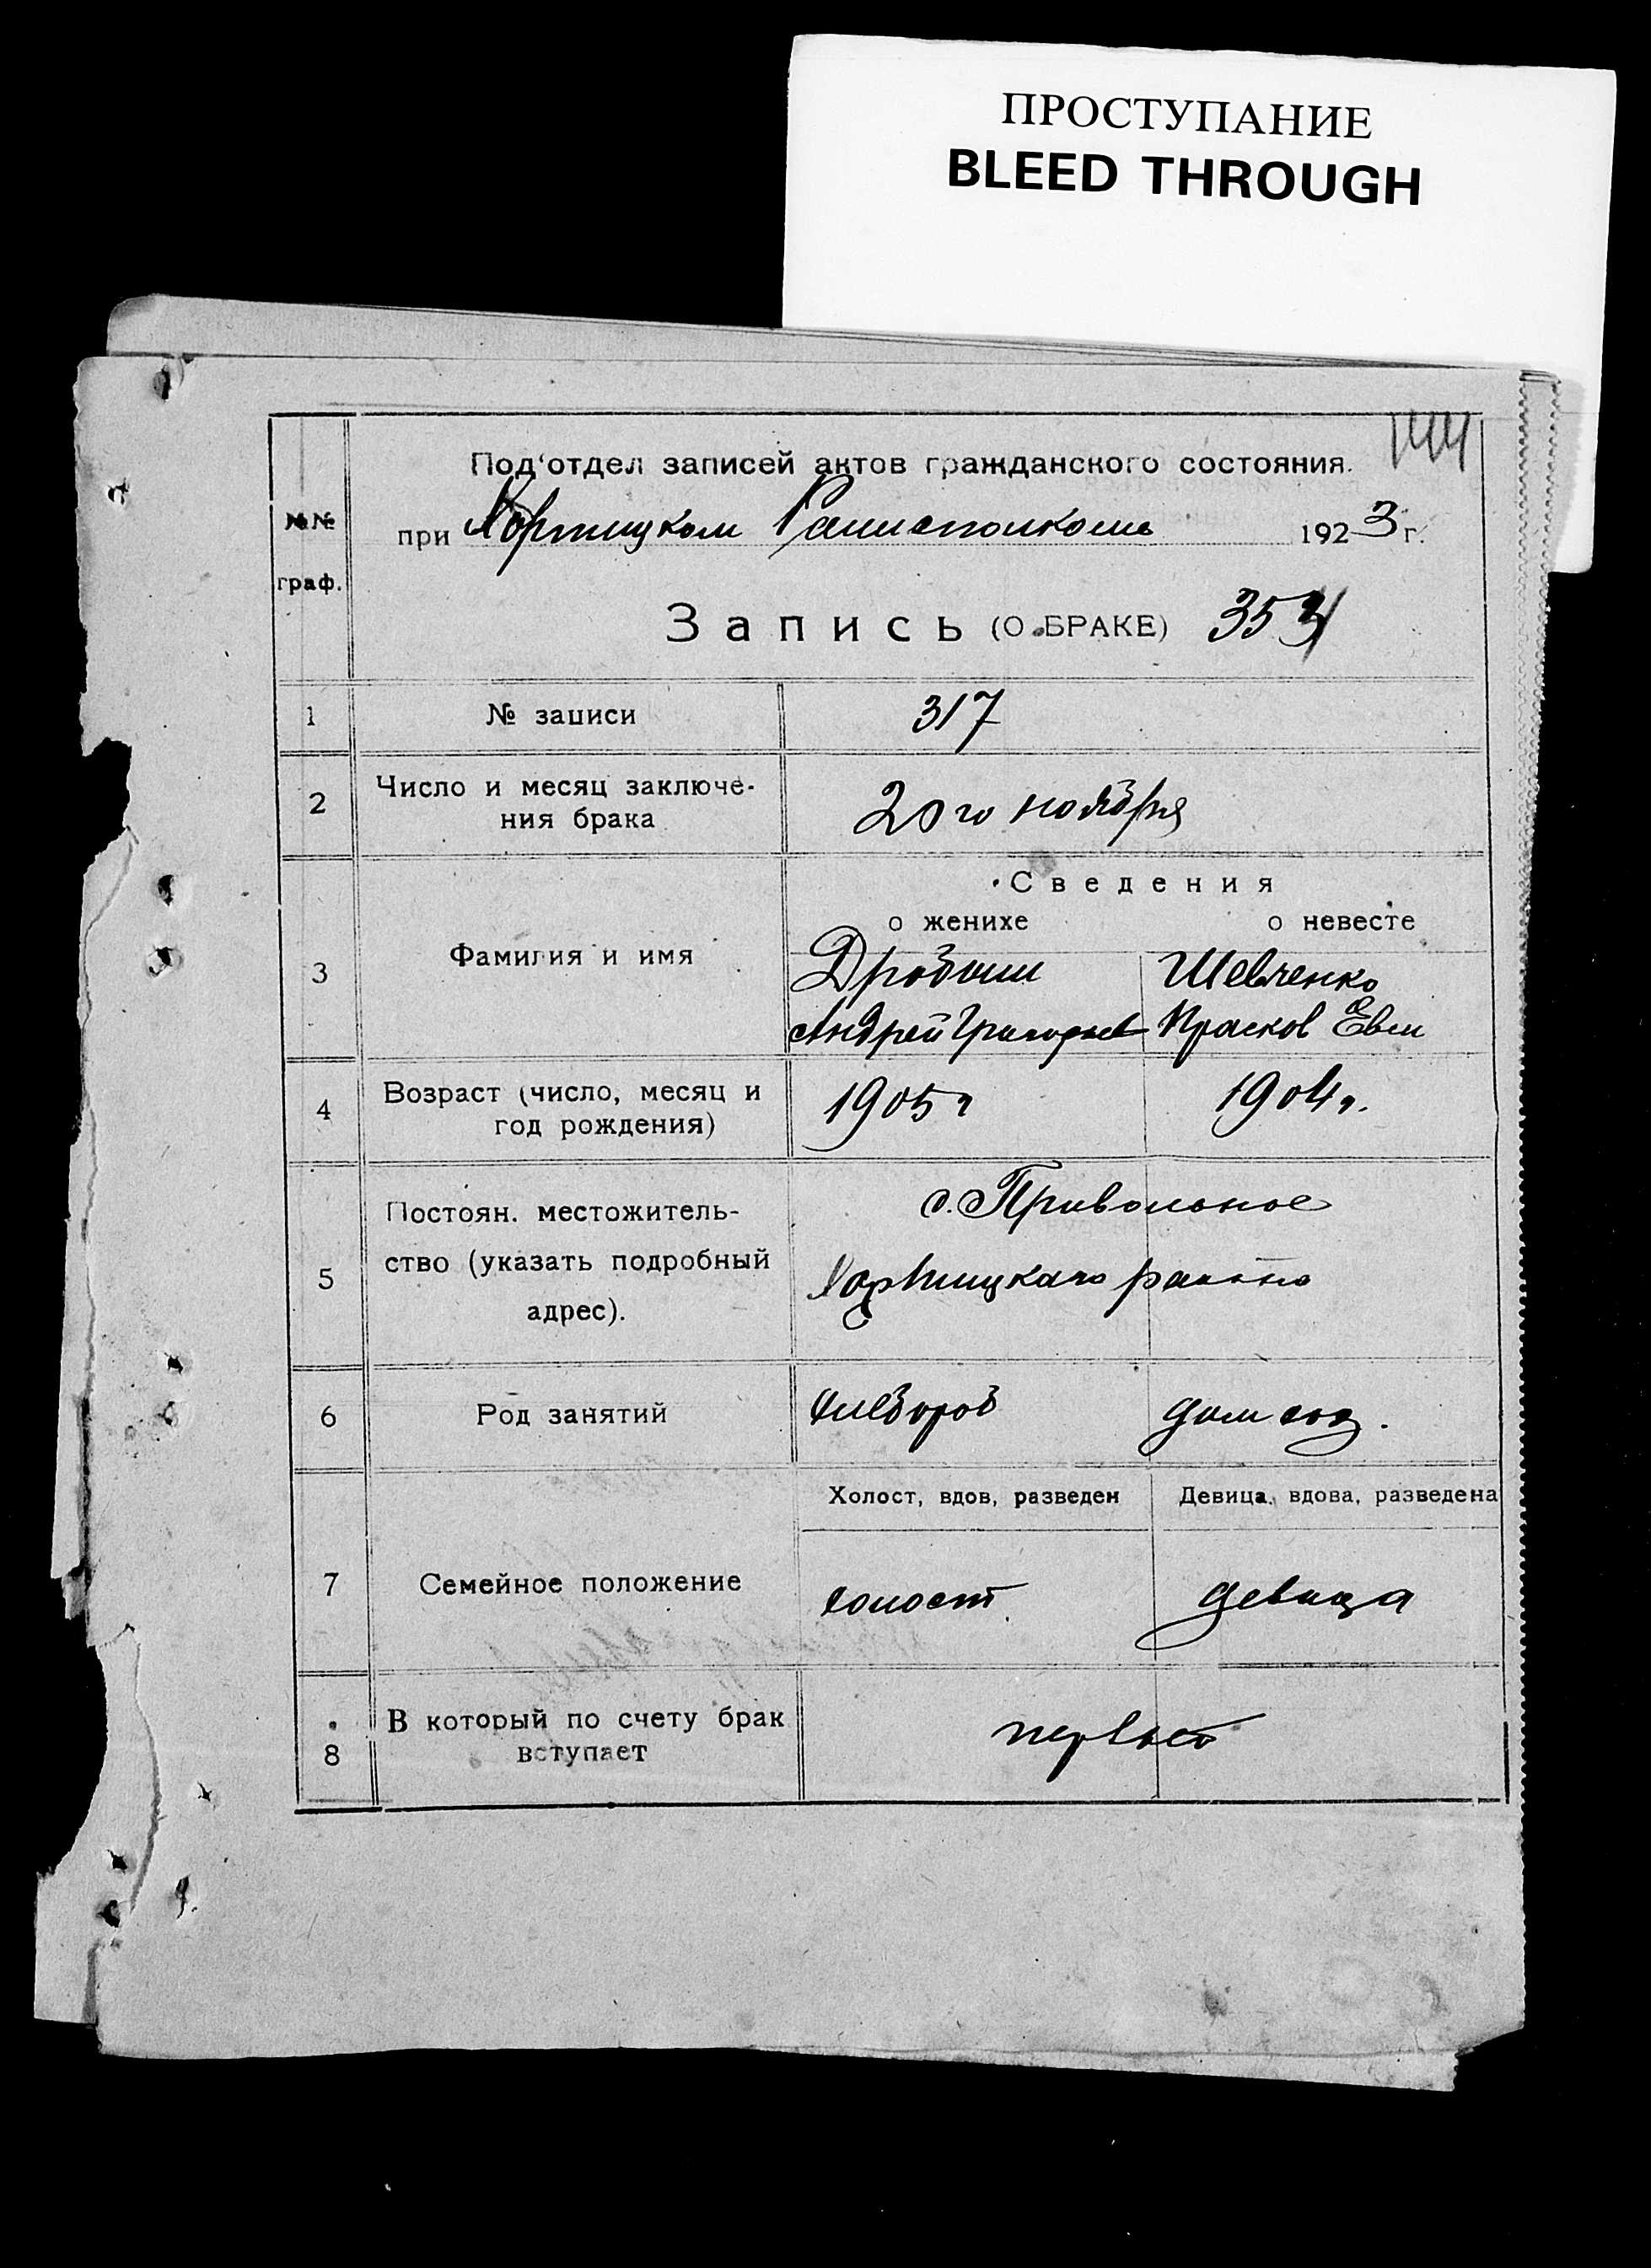 ПРОСТУПАНИЕ
BLEED THROUGH
Под‘отдел записей актов гражданского состояния.
№№ граф.
при Хортицком 1923 г.
Запись (О БРАКЕ) 353
1 № записи 317
2 Число и месяц заключе-
ния брака 20го ноября
Сведения
о женихе о невесте
3 Фамилия и имя
Шевченко
Андрей Григорьев Прасков Евм
4 Возраст (число, месяц и
год рождения) 1905 г 1904 г.
5 Постоян. местожитель-
ство (указать подробный
адрес).
с. Привольное
Хортицкаго района
6 Род занятий хлебороб дом хоз.
Холост, вдов, разведен Девица, вдова, разведена
7 Семейное положение холост девица
8 В который по счету брак
вступает первый